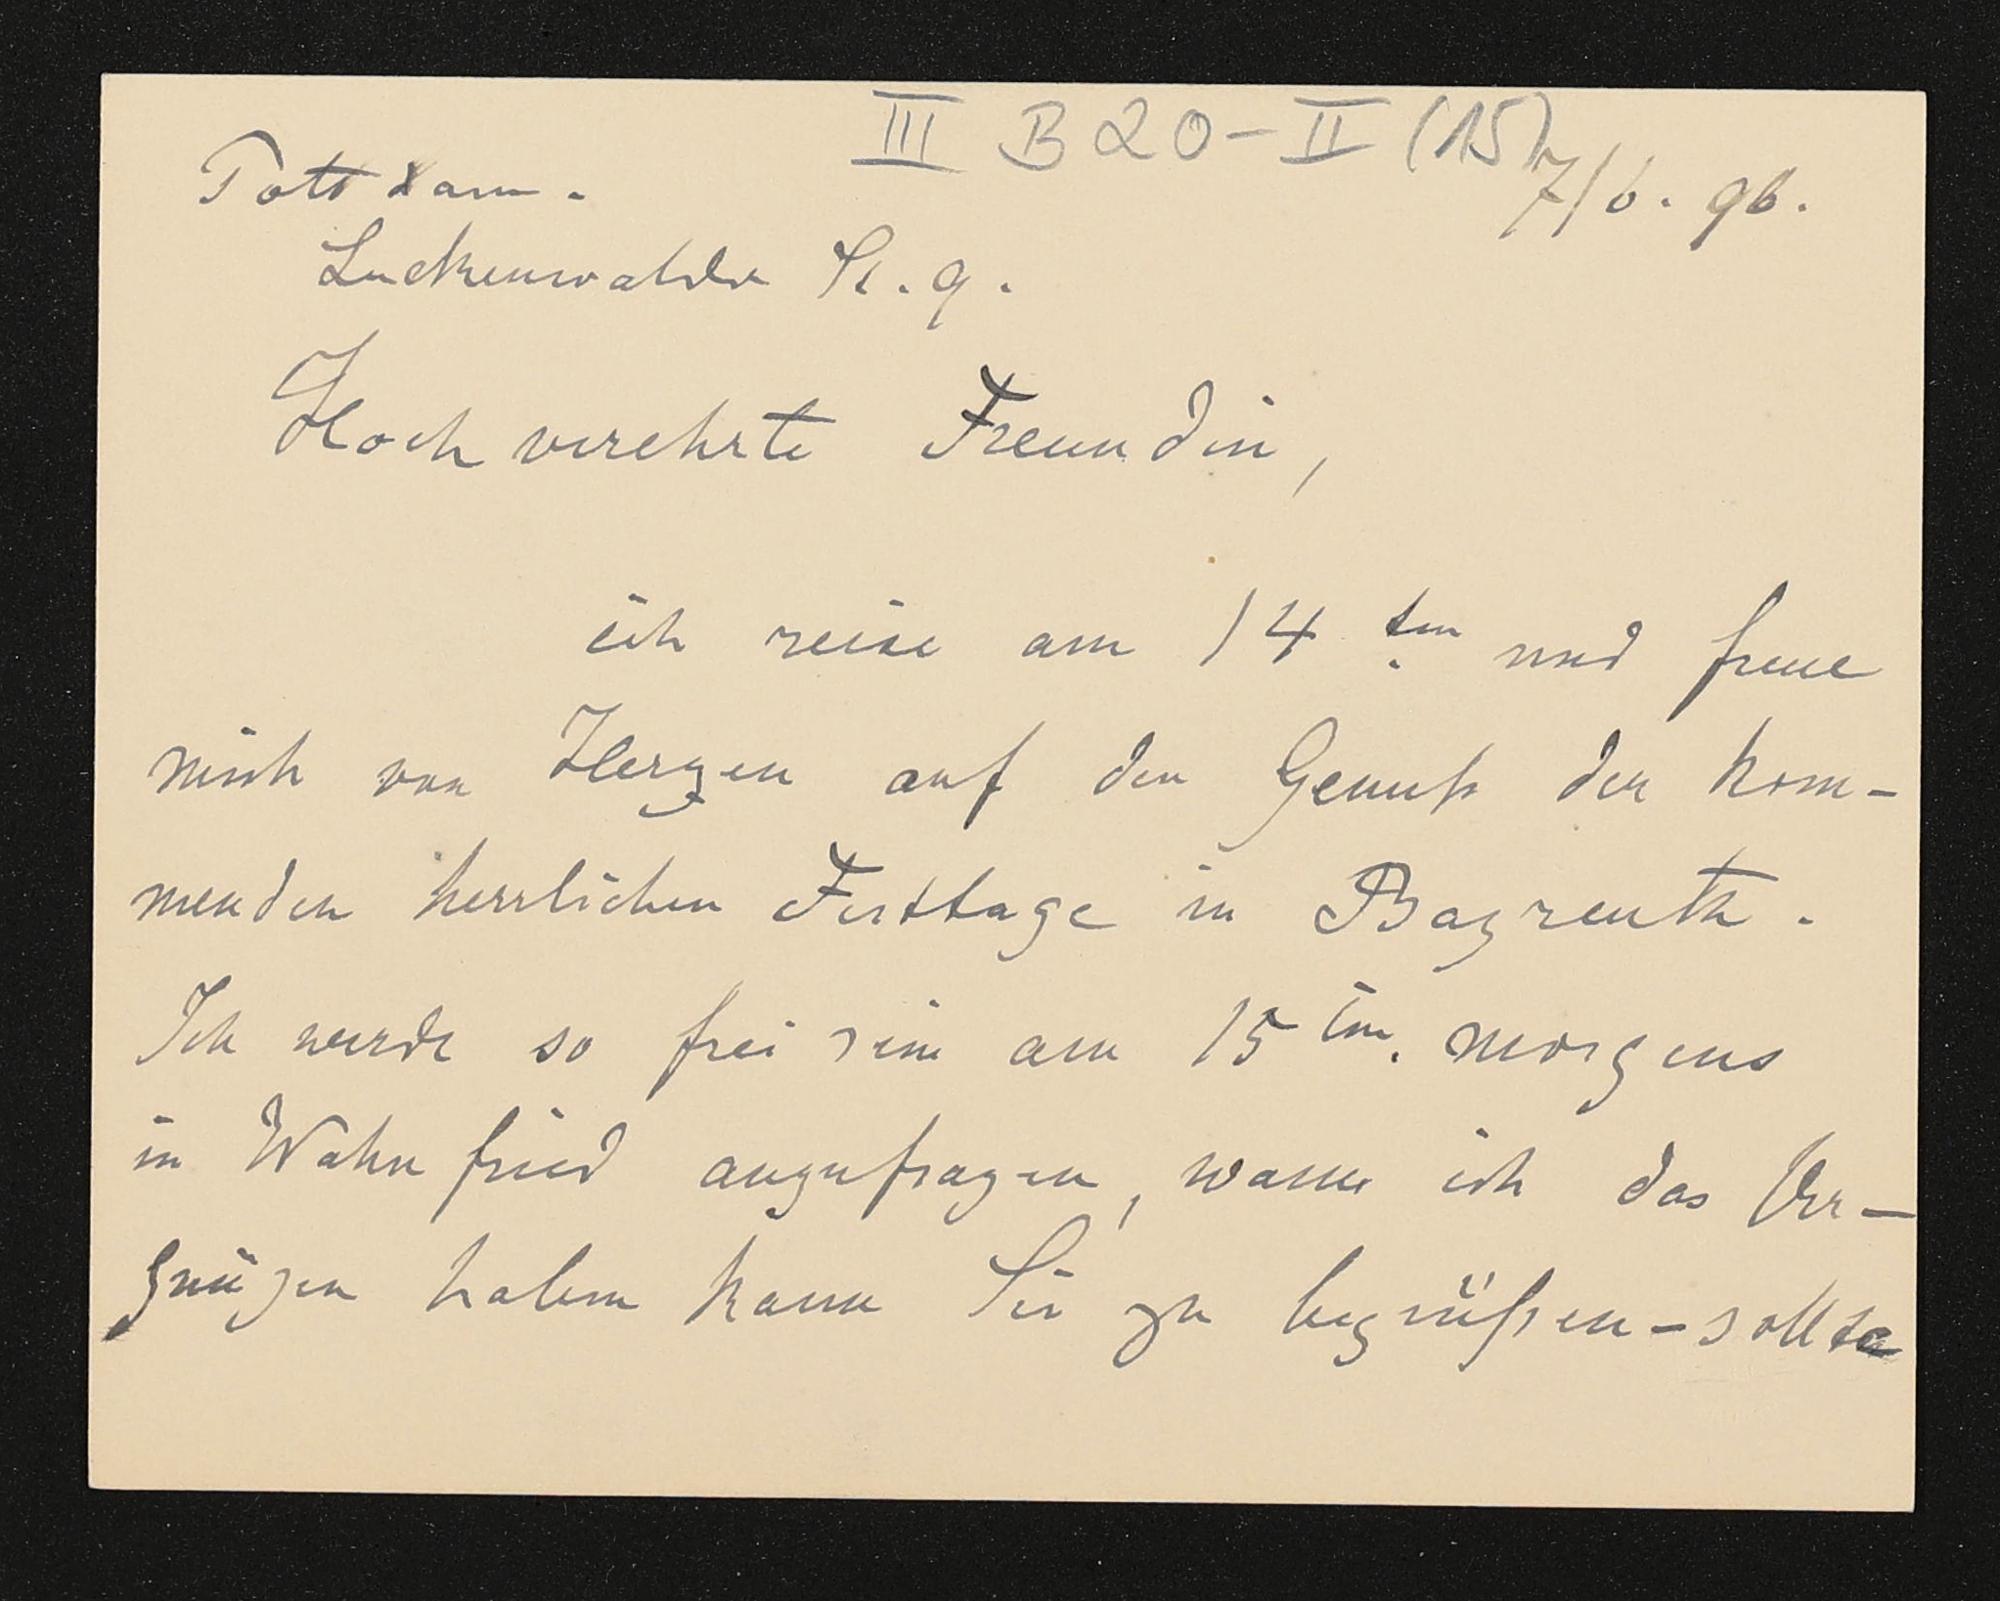 III B 20-II (15)
Potsdam.
7/6. 96.
Luckenwalder St. 9.
Hochverehrte Freundin,
ich reise am 14ten. und freue
mich von Herzen auf den Genuß der kom-
menden herrlichen Festtage in Bayreuth.
Ich werde so frei sein am 15ten. morgens
in Wahnfried anzufragen, wann ich das Ver-
gnügen haben kann Sie zu begrüßen - sollte